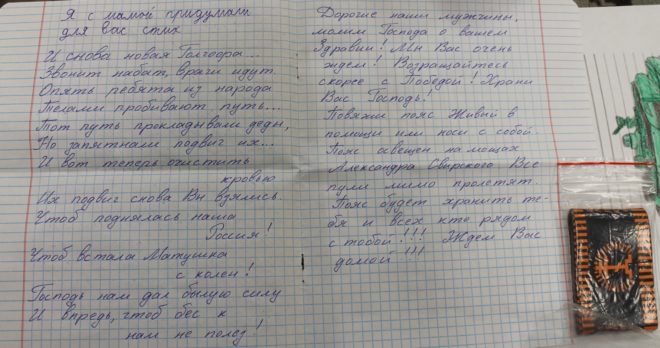 Я с мамой придумали
для вас стих
И снова новая Голгофа...
Звонит набат, враги идут.
Опять ребята из народа
Телами пробивают путь...
Тот путь прокладывали деды,
Но запятнали подвиг их...
И вот теперь очистить
кровью
Их подвиг снова Вы взялись.
Чтоб поднялась наша
Россия!
Чтоб встала Матушка
с колен!
Господь нам дал былую силу
И впредь, чтоб бес к
нам не полез!
Дорогие наши мужчины,
молим Господа о вашем
Здравии! Мы Вас очень
ждем! Возращайтесь
скорее с Победой! Храни
Вас Господь!
Повяжи пояс Живый в
помощи или носи с собой.
Пояс освещен на мощах
Александра Свирского Все
пули мимо пролетят.
Пояс будет хранить те-
бя и всех кто рядом
с тобой!!! Ждем Вас
домой!!!